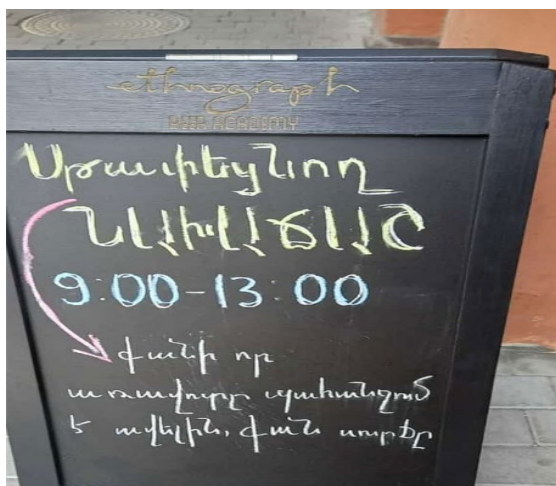 ethnograph
BEER ACADEMY
Սթափեցնող
ՆԱԽԱՃԱՇ
9:00-13:00
քանի որ
առավոտը պահանջում
է ավելին, քան սուրճը